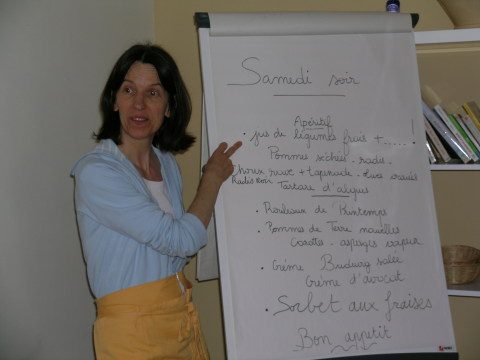 Samedi soir
Apéritif
• jus de légumes frais + ......!
Pommes séchées - radis -
Choux rave + tapenade - Olives
Radis Noir Tartare d'algues
• Rouleaux de Printemps
• Pommes de Terre nouvelles
Carottes - asperges vapeur
• Crème Budwig salée
Crème d'avocat
• Sorbet aux fraises
Bon appetit